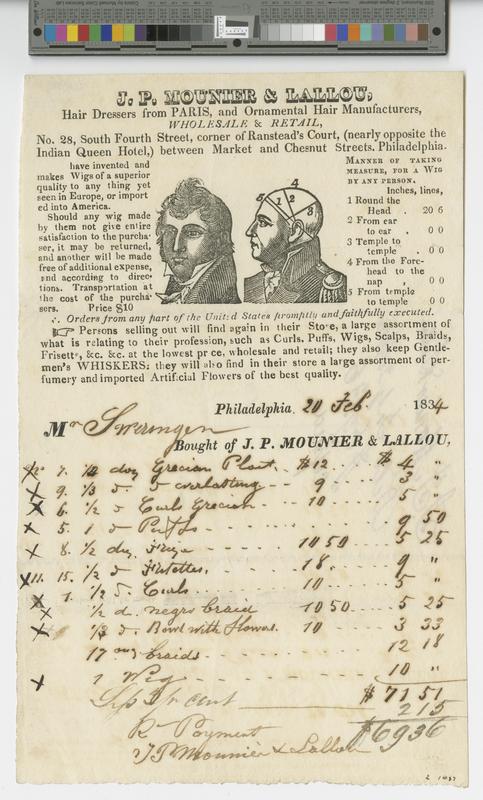 J. P. MOUNIER & LALLOU,
Hair Dressers from PARIS, and Ornamental Hair Manufacturers,
WHOLESALE & RETAIL,
No. 28, South Fourth Street, corner of Ranstead's Court, (nearly opposite the
Indian Queen Hotel,) between Market and Chesnut Streets. Philadelphia.
have invented and
makes Wigs of a superior
quality to any thing yet
seen in Europe, or import
ed into America.
Should any wig made
by them not give entire
satisfaction to the purcha-
ser, it may be returned,
and another will be made
free of additional expense,
and according to direc-
tions. Transportation at
the cost of the purcha-
sers. Price $10
5 4 1 2 3
MANNER OF TAKING
MEASURE, FOR A WIG
BY ANY PERSON.
Inches, lines,
1 Round the
Head . 20 6
2 From ear
to ear . 0 0
3 Temple to
temple . 0 0
4 From the Fore-
head to the
nap . 0 0
5 From temple
to temple 0 0
Orders from any part of the United States promptly and faithfully executed.
Persons selling out will find again in their Store, a large assortment of
what is relating to their profession, such as Curls. Puffs, Wigs, Scalps, Braids,
Frisetts, &c. &c. at the lowest price, wholesale and retail; they also keep Gentle-
men's WHISKERS: they will also find in their store a large assortment of per-
fumery and imported Artificial Flowers of the best quality.
Philadelphia, 20 Feb. 1834
Mr
Bought of J. P. MOUNIER & LALLOU,
7. doz Grecian Plait. $12 $ 4 "
9. 1/3 d. d everlasting 9 3 "
6. 1/2 d Curls Grecian 10 5 "
5. 1 d Puffs 9 50
8. 1/2 doz 10 50 5 25
11. 15. 1/2 d Fristettes. 18. 9 "
1. 1/2 d. Curls 10 5 "
1/2 d. negro braid 10 50 5 25
1/3 d. Bowl with flowers. 10 3 33
17 braids 12 18
1 Wig 10 "
$ 71 51
cent 2 15
$69 36
Rd Payment
J P Mounier & Lallou